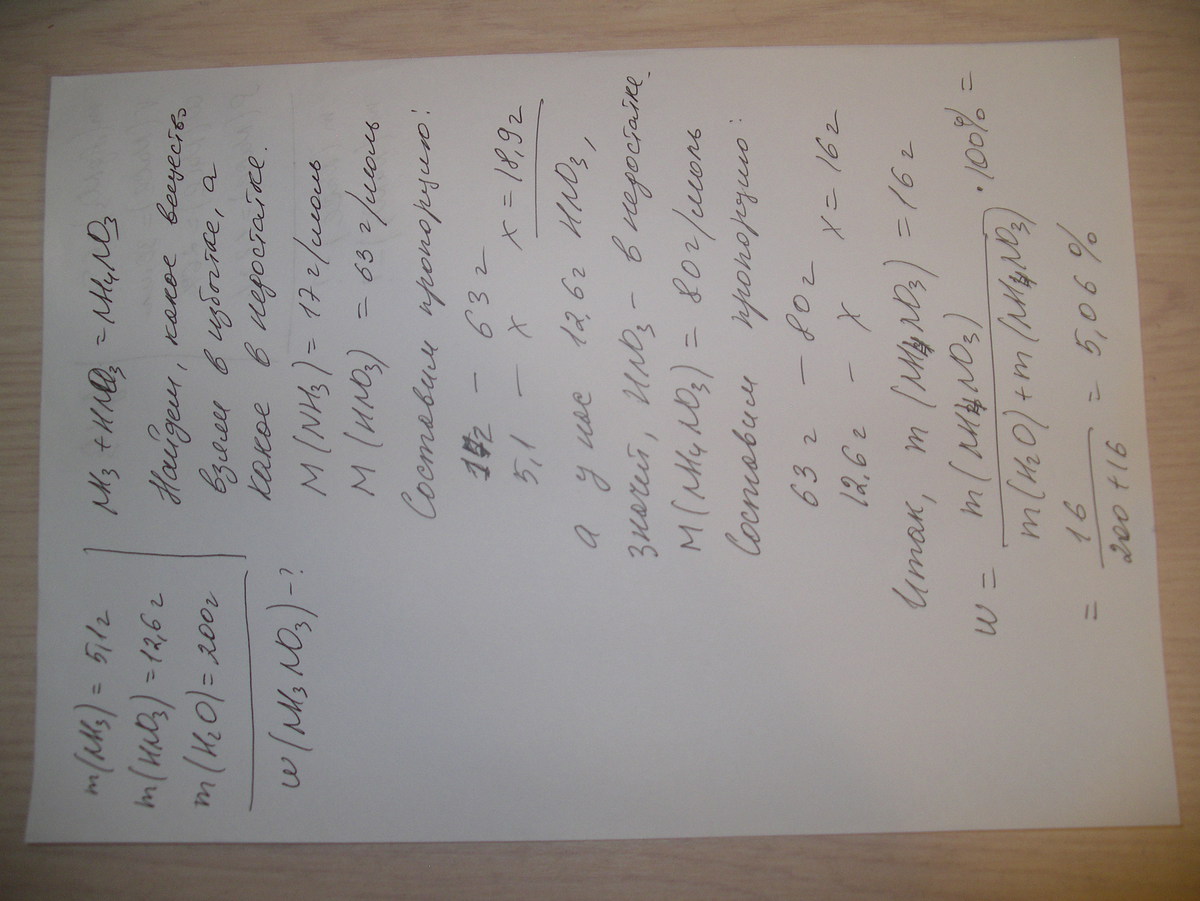 m(NH₃) = 5,1г
m(HNO₃) = 12,6г
m(H₂O) = 200г
w(NH₃NO₃) - ?
NH₃ + HNO₃ = NH₄NO₃
Найдем, какое вещество
взяли в избытке, а
какое в недостатке.
M(NH₃) = 17 г/моль
M(HNO₃) = 63 г/моль
Составим пропорцию:
17г - 63 г
5,1 - x x = 18,9г
а у нас 12,6г HNO₃,
значит, HNO₃ - в недостатке.
M(NH₄NO₃) = 80г/моль
Составим пропорцию:
63 г - 80 г
12,6 г - x x = 16 г
Итак, m(NH₄NO₃) = 16 г
w = m(NH₄NO₃) / m(H₂O) + m(NH₄NO₃) · 100% =
= 16 / 200 + 16 = 5,06 %